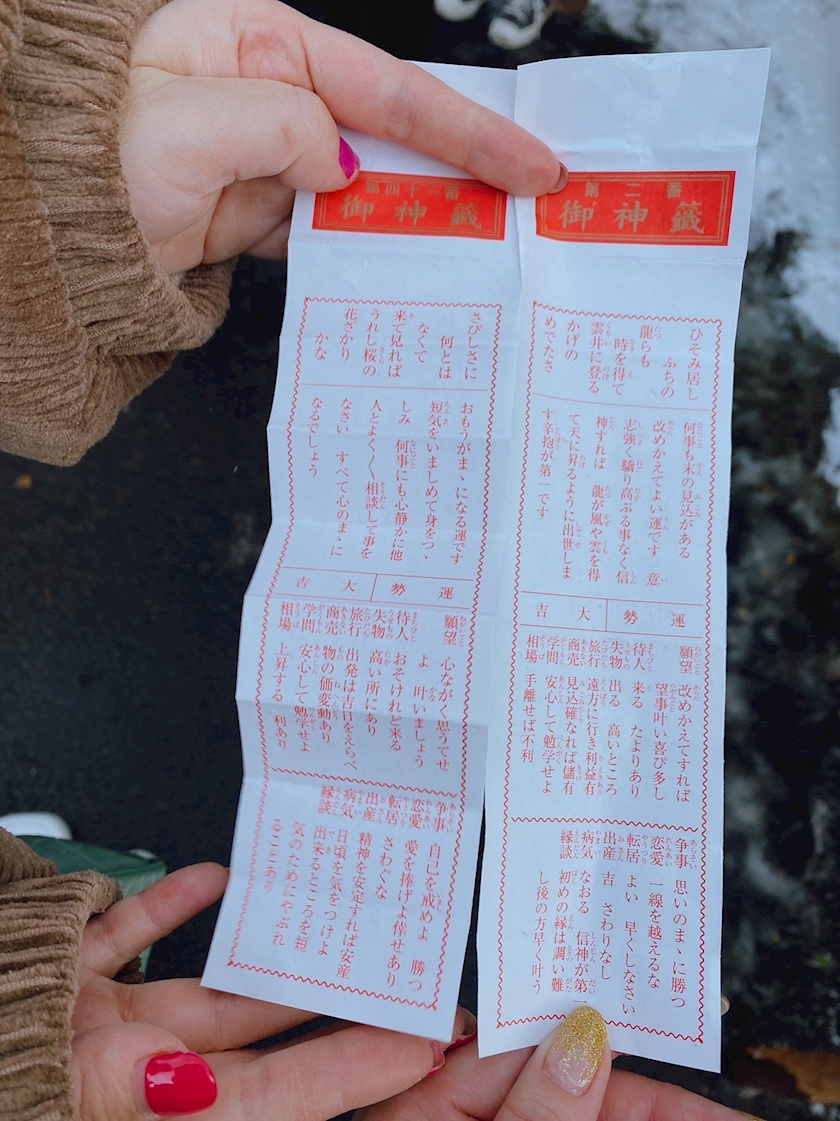 第二番
御神籤
ひそみ居し
ふちの
龍らも
時を得て
雲井に登る
かげの
めでたさ
何事も末の見込がある
改めかえてよい運です 意
志強く驕り高ぶる事なく信
神すれば 龍が風や雲を得
て天に昇るように出世しま
す辛抱が第一です
運勢 大吉
願望 改めかえてすれば
望事叶い喜び多し
待人 来る たよりあり
失物 出る 高いところ
旅行 遠方に行き利益有
商売 見込確なれば儲有
学問 安心して勉学せよ
相場 手離せば不利
争事 思いのまゝに勝つ
恋愛 一線を越えるな
転居 よい 早くしなさい
出産 吉 さわりなし
病気 なおる 信神が第一
縁談 初めの縁は調い難
し後の方早く叶う
第四十一番
御神籤
さびしさに
何とは
なくて
来て見れば
うれし桜の
花ざかり
かな
おもうがまゝになる運です
短気をいましめて身をつゝ
しみ 何事にも心静かに他
人とよく〱相談して事を
なさい すべて心のまゝに
なるでしょう
運勢 大吉
願望 心ながく思うてせ
よ 叶いましょう
待人 おそけれど来る
失物 高い所にあり
旅行 出発は吉日をえらべ
商売 物の価変動あり
学問 安心して勉学せよ
相場 上昇する 利あり
争事 自己を戒めよ 勝つ
恋愛 愛を捧げよ倖せあり
転居 さわぐな
出産 精神を安定すれば安産
病気 日頃を気をつけよ
縁談 出来るところを短
気のためにやぶれ
ることあり